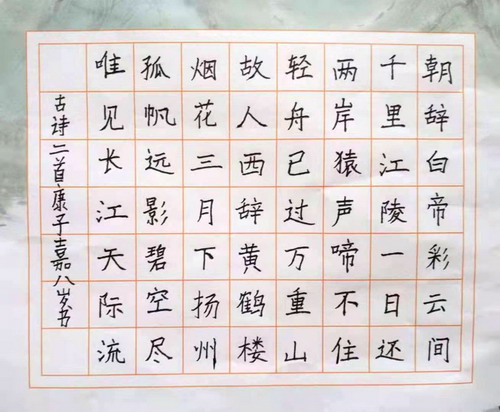 朝辞白帝彩云间
千里江陵一日还
两岸猿声啼不住
轻舟已过万重山
故人西辞黄鹤楼
烟花三月下扬州
孤帆远影碧空尽
唯见长江天际流
古诗二首康子嘉八岁书